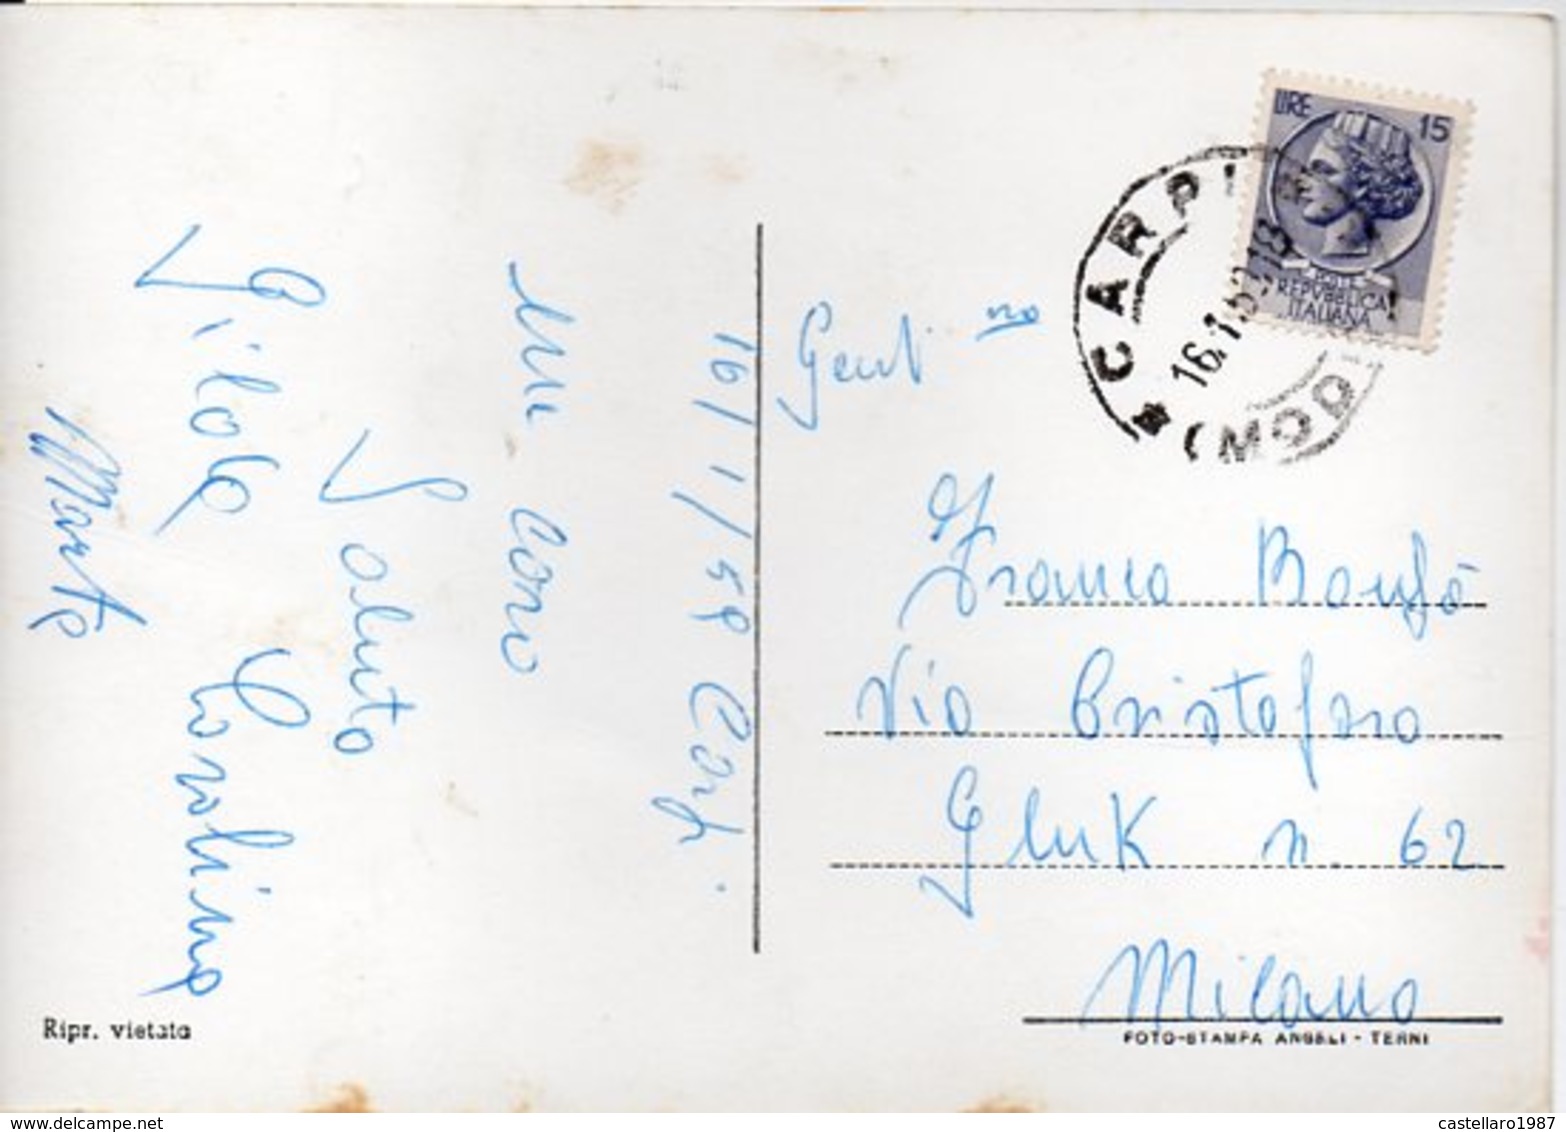 16/1/59 Carpi.
Un caro
Saluto
Gilda Carolina
Marta
Ripr. vietata
Gent. ma
Franca Bonfà
Via Cristoforo
Gluk n. 62
Milano
FOTO-STAMPA ANGELI - TERNI
LIRE 15
POSTE
REPUBBLICA
ITALIANA
CARPI
16.1.59.18
(MOD
castellaro1987